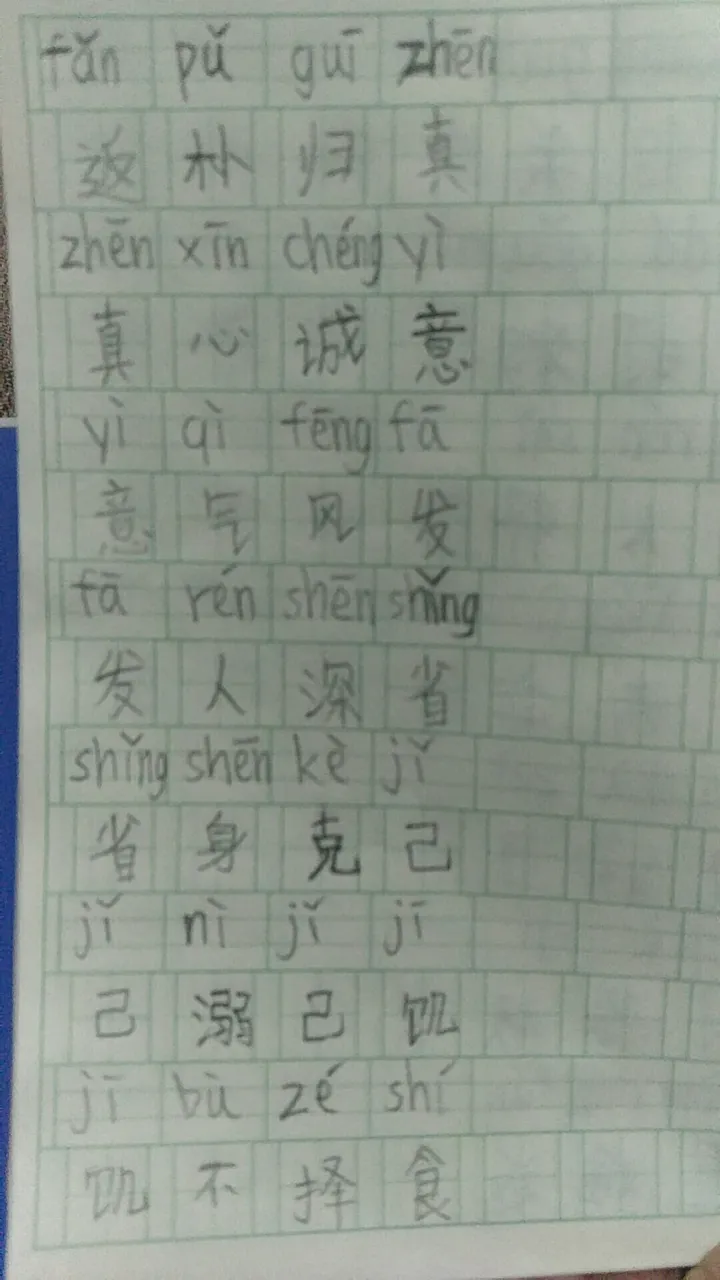 fǎn pǔ guī zhēn
返朴归真
zhēn xīn chéng yì
真心诚意
yì qì fēng fā
意气风发
fā rén shēn shǐng
发人深省
shǐng shēn kè jǐ
省身克己
jǐ nì jǐ jī
己溺己饥
jī bù zé shí
饥不择食